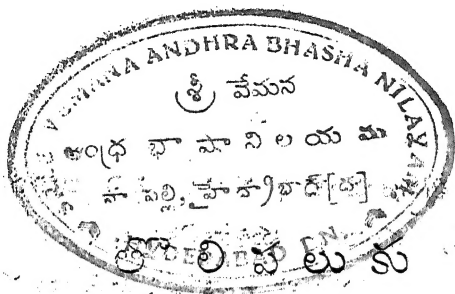 VEMANA ANDHRA BHASHA NILAYAM
శ్రీ వేమన
ఆంధ్ర భాషా నిలయము
హైద్రాబాద్ [ద]
తొలిపలుకు